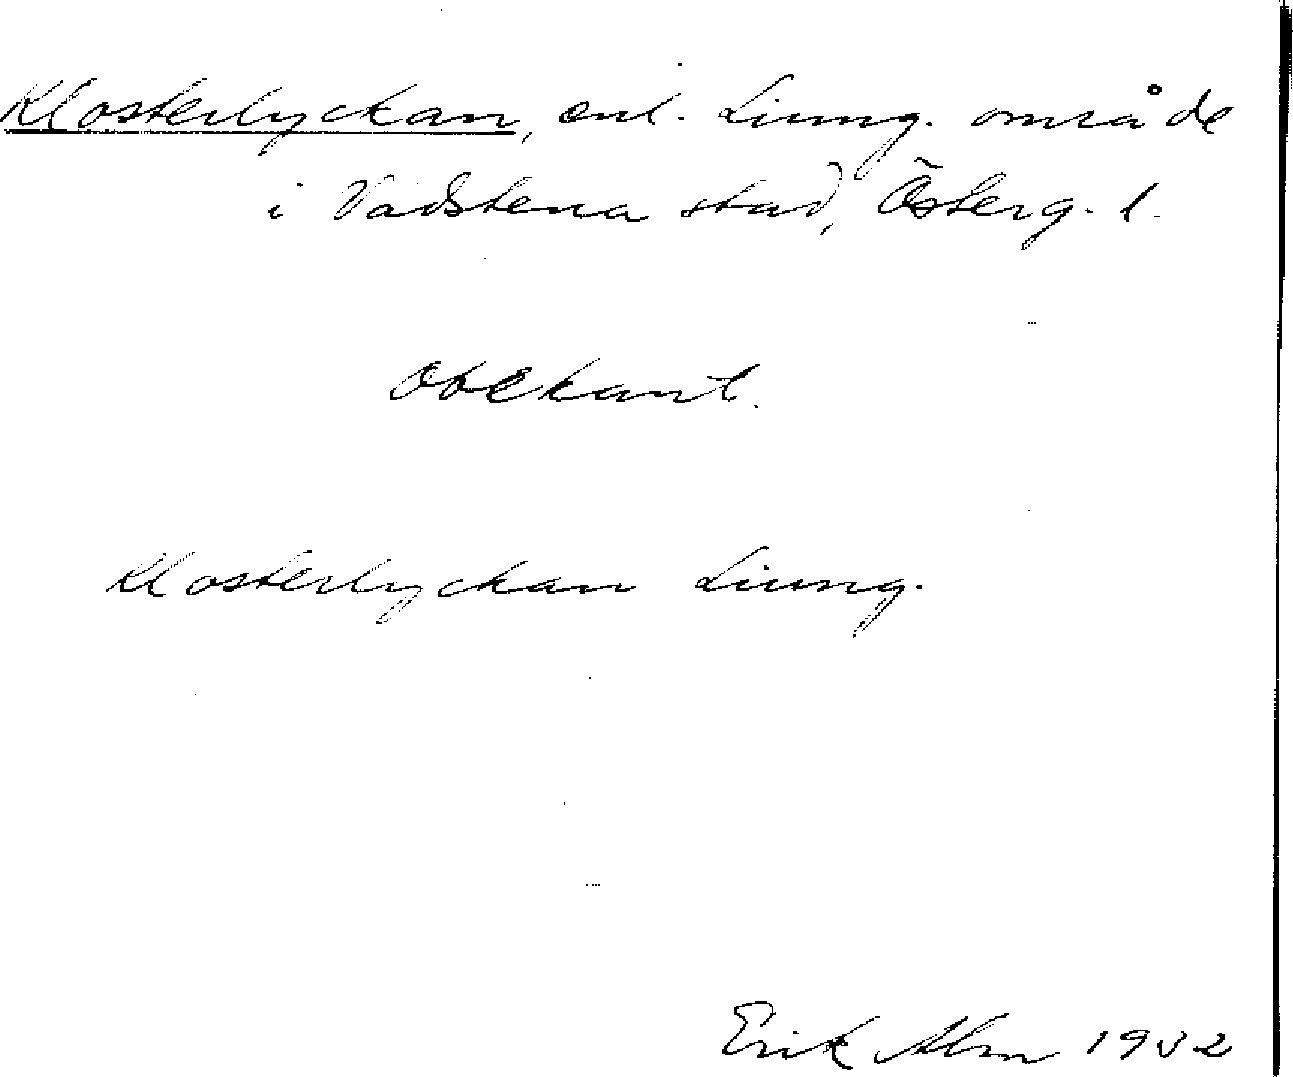 Klosterlyckan, enl. Liung. område
i Vadstena stad, Österg. l.
Obekant.
Klosterlyckan Liung.
Erik Alm 1932